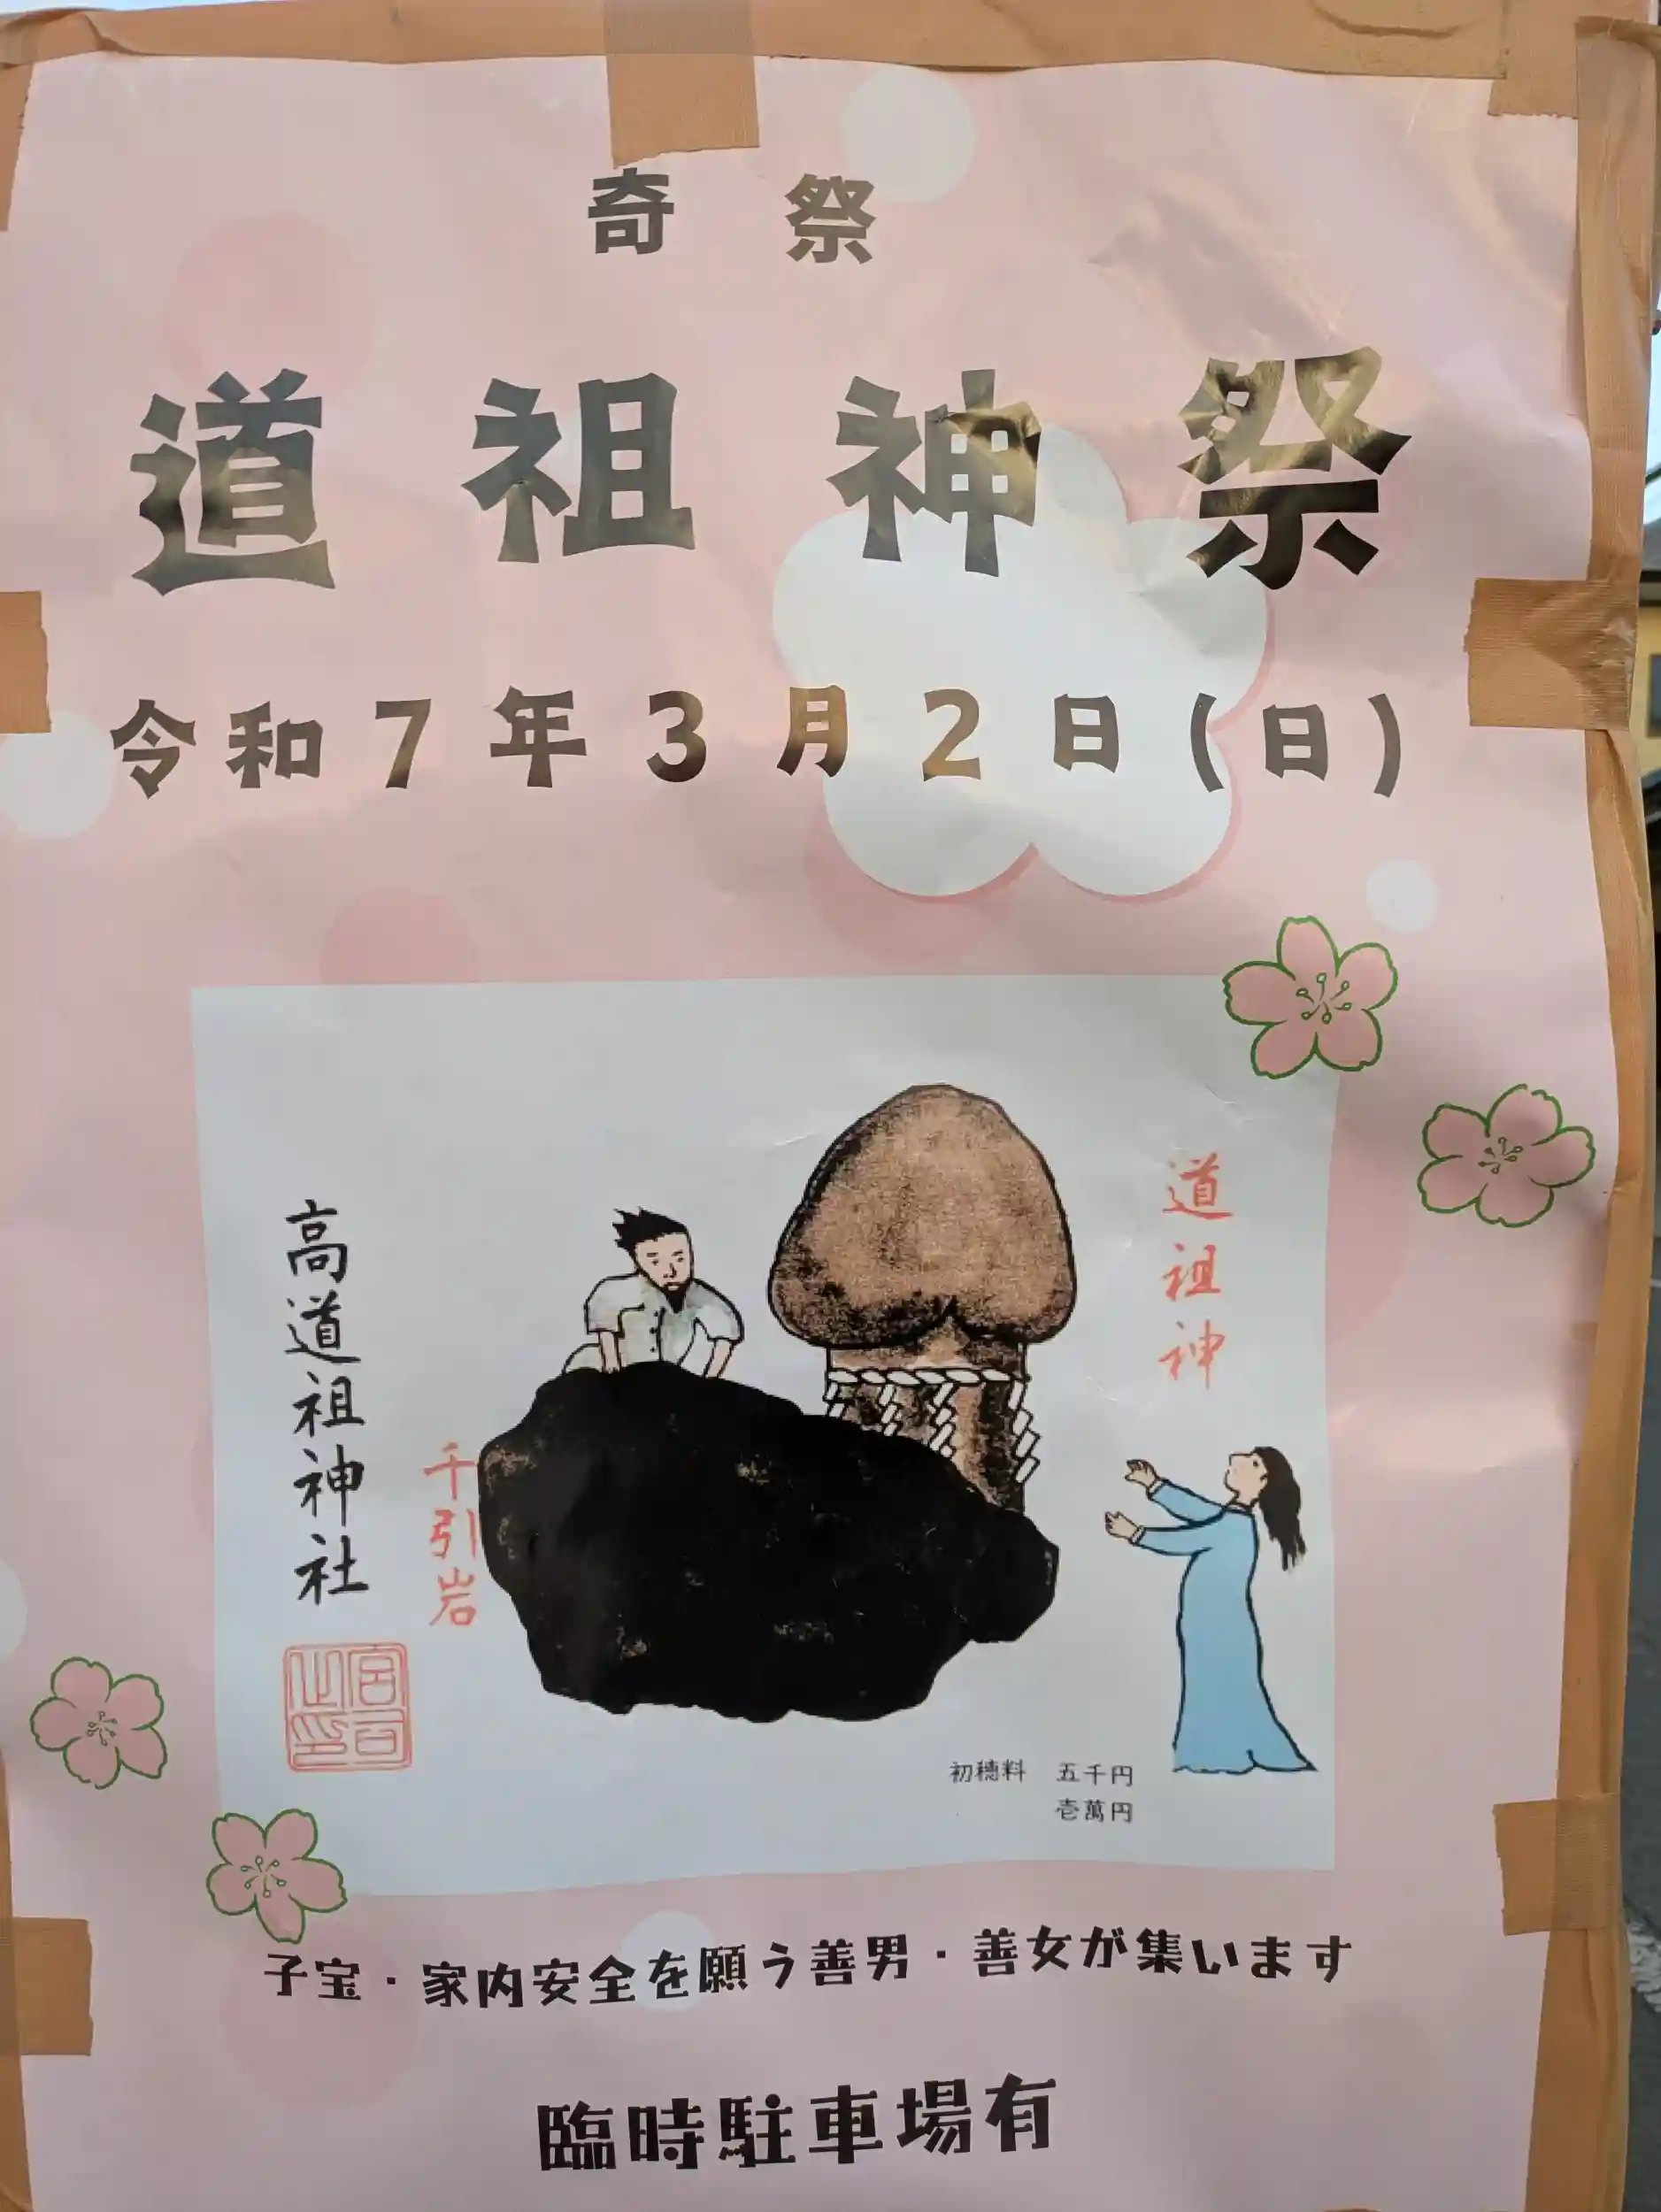 奇祭
道祖神祭
令和7年3月2日(日)
道祖神
千引岩
高道祖神社
宮司之印
初穂料 五千円
壱萬円
子宝・家内安全を願う善男・善女が集います
臨時駐車場有